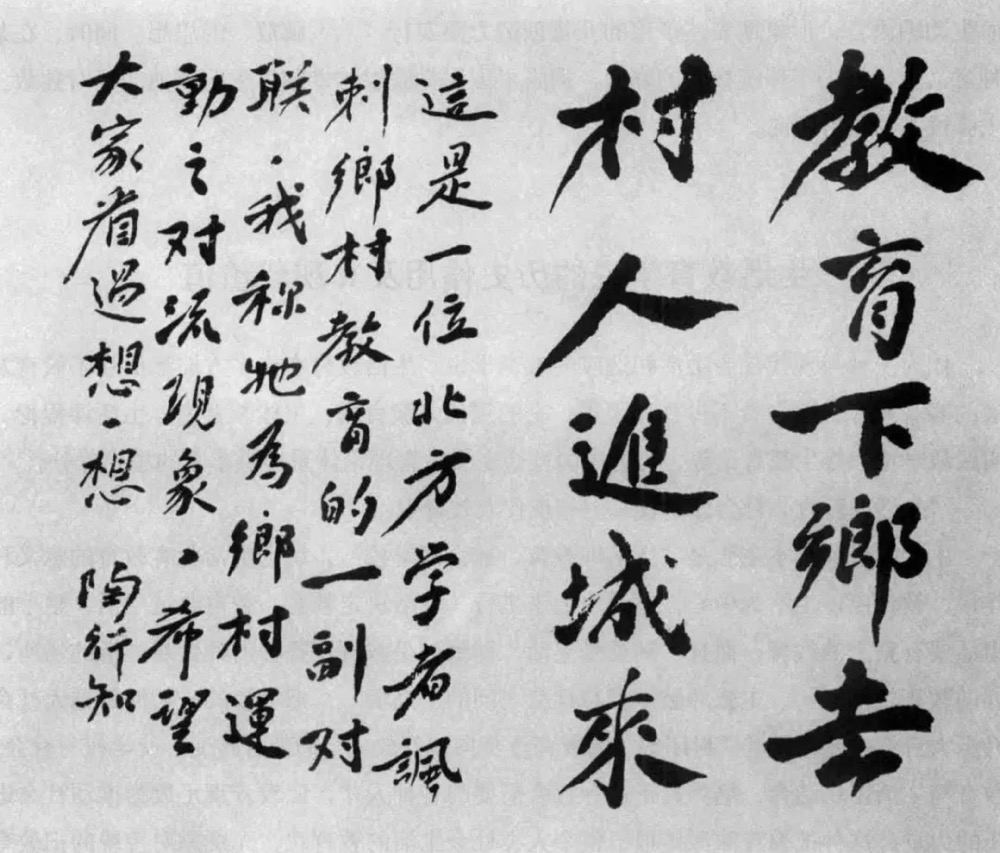 教育下鄉去
村人進城來
這是一位北方学者諷
刺鄉村教育的一副对
联，我称牠為鄉村運
動之对流現象。希望
大家看過想一想。陶行知